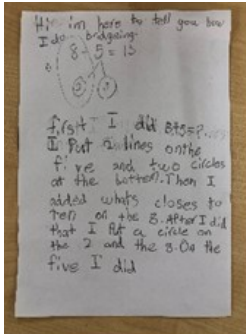 Hi im here to tell you how
I do bridgeing.
8 5 = 13
first I did 8+5=?
I Put 2 lines on the
five and two circles
at the bottem. Then I
added whats closes to
ten on the 8. After I did
that I Put a circle on
the 2 and the 8. On the
five I did